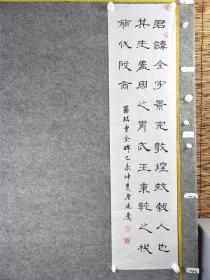 君諱全字景完敦煌效穀人也
其先蓋周之胄武王秉乾之機
翦伐殷商
曹全碑乙未仲夏